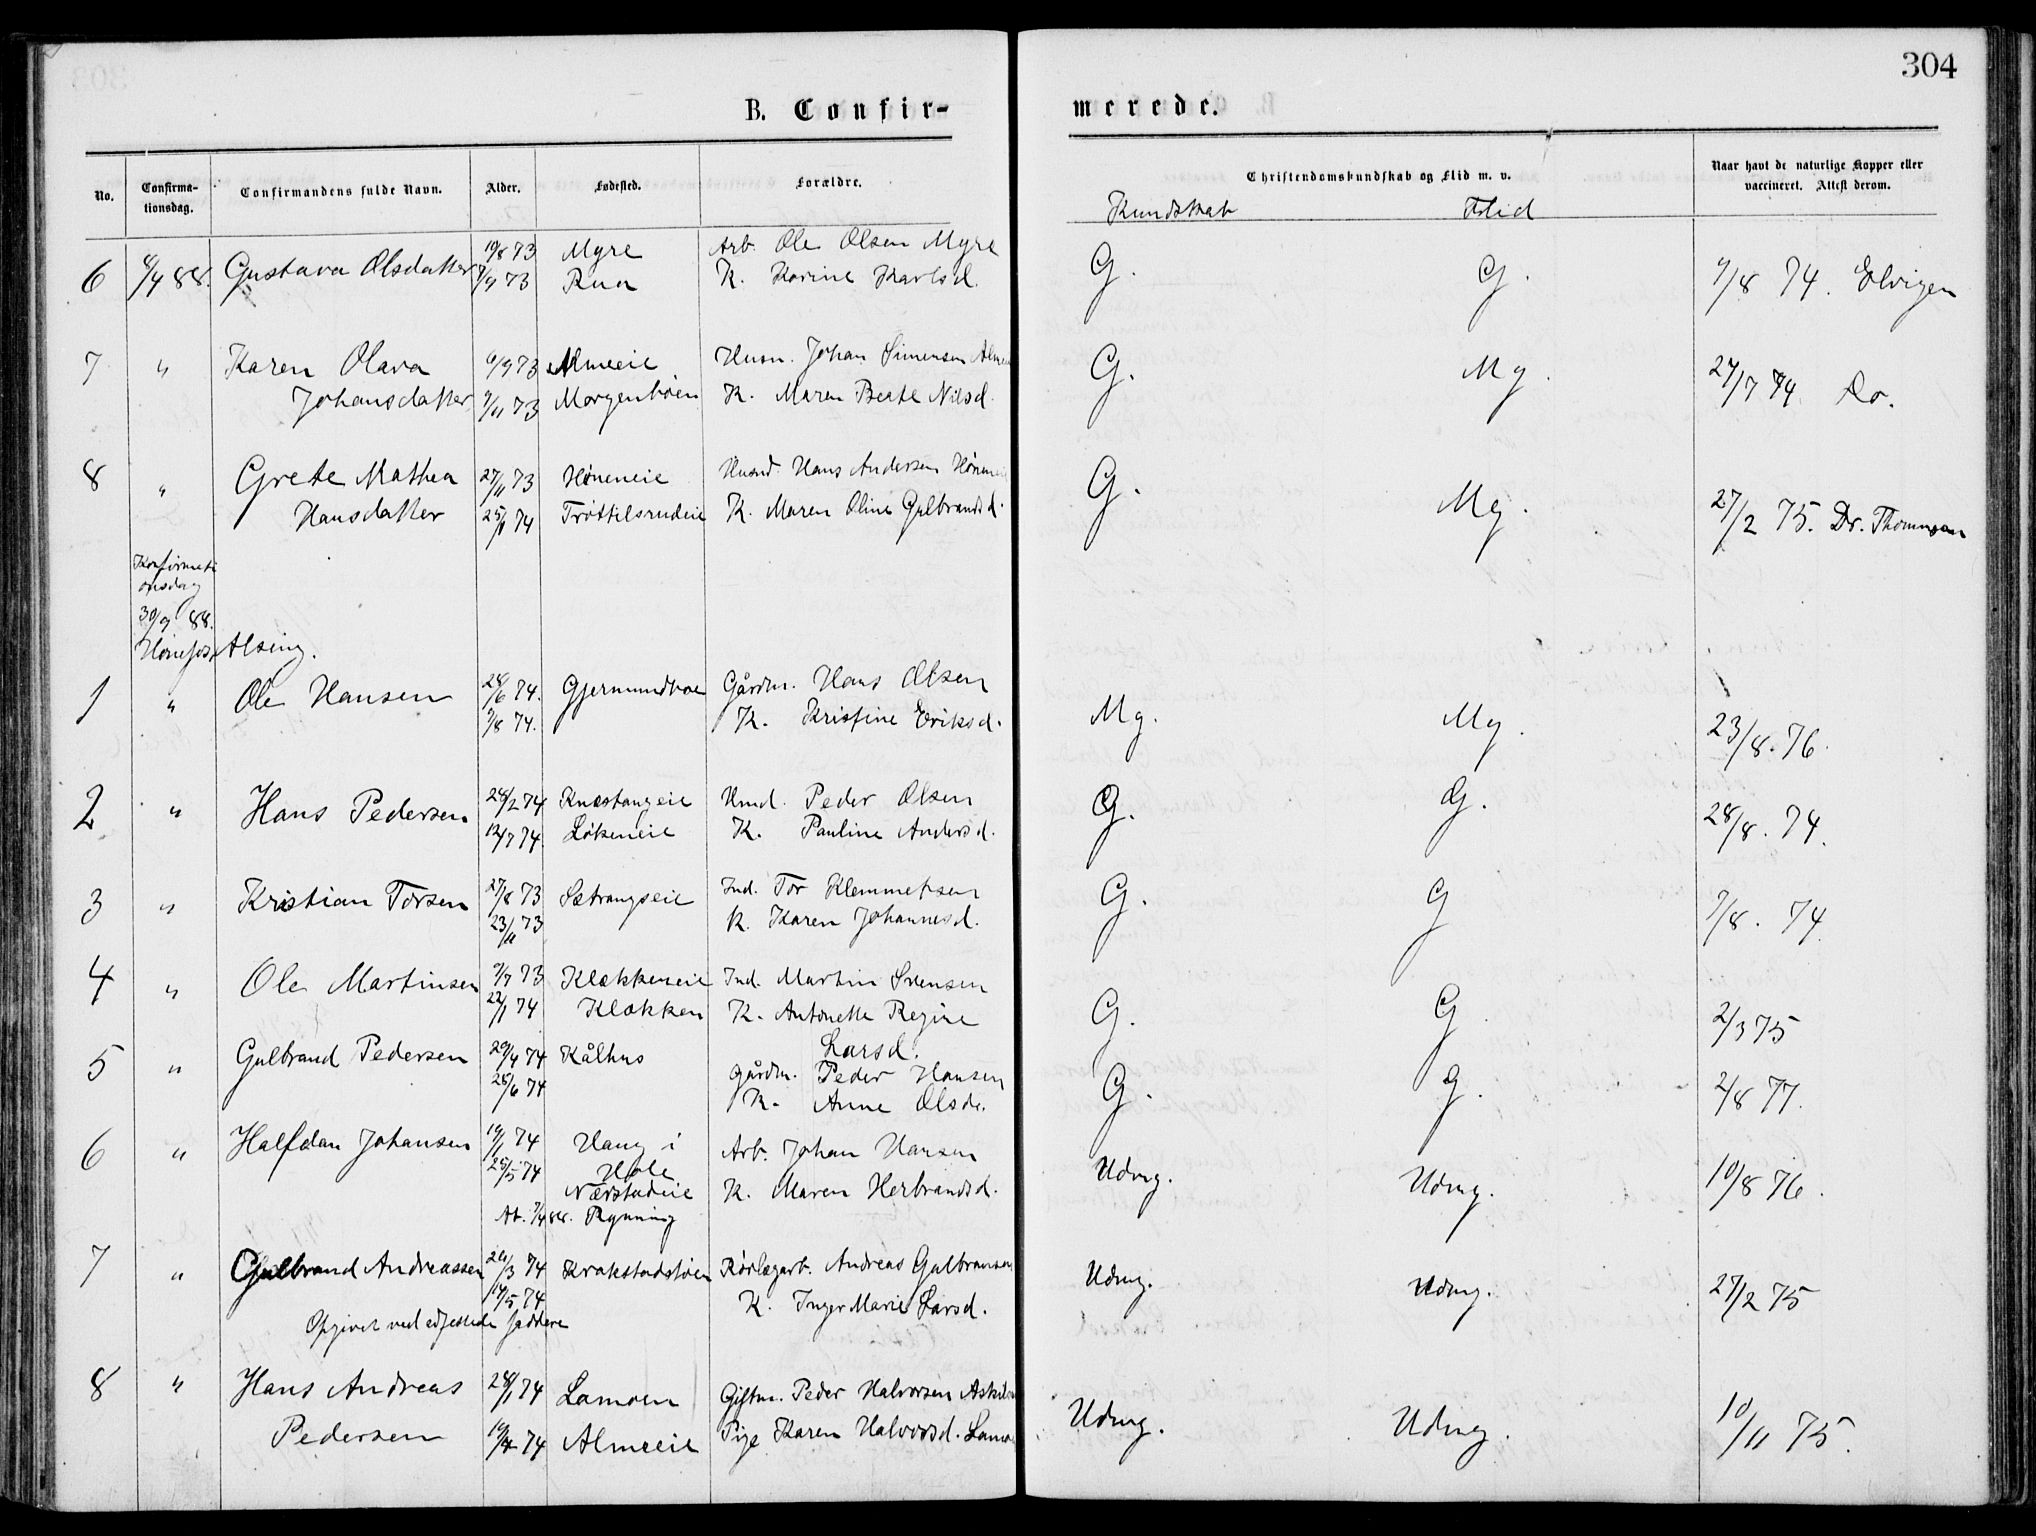 304
B. Confir-
merede.
No.
Confirma-
tionsdag.
Confirmandens fulde Navn.
Alder.
Fødested.
Forældre.
Christendomskundskab og Flid m. v.
Naar havt de naturlige Kopper eller
vaccineret. Attest derom.
Kundskab Flid
19/8 73 Myre Arb. Ole Olsen Myre
6 8/4 88. Gustava Olsdatter 7/9 73 Rua K. Karine Karlsd. G. G. 9/8 74. Elvigen
7 " Karen Olava 6/9 73 Almeeie Husm. Johan Simensen
Johansdatter 9/11 73 Morgenbøen K. Maren Beate Nilsd. G. Mg. 27/7 74. Do.
8 " Grete Mathea 27/11 73 Høneneie Husmd. Hans Andersen
Hansdatter 25/1 74 Trøttilsrudeie K. Maren Oline Gulbrandsd. G. Mg. 27/2 75. Dr. Thomesen
Konfirmati
onsdag
30/9 88.
Hønefos Alsing.
1 " Ole Hansen 28/6 74. Gjermundboe Gårdm. Hans Olsen
9/8 74. K. Kristine Eriksd. Mg. Mg. 23/8. 76.
2 " Hans Pedersen 28/2 74 Knæstangeie Husmd. Peder Olsen
12/7 74. Løkeneie K. Pauline Andersd. G. G. 28/8. 74.
3 " Kristian Torsen 27/8 73 Sætrangseie Ind. Tor Klemmetsen
23/11 73 K. Karen Johannesd. G. G 9/8. 74.
4 " Ole Martinsen 9/7 73 Klækkeneie Ind. Martin Svensen
22/1 74 Klækken K. Antonette Regine
Larsd. G. G. 2/3 75
5 " Gulbrand Pedersen 29/4 74 Kålhus Gårdm. Peder Hansen
28/6 74 K. Anne Olsd. G. G. 2/8 77.
6 " Halfdan Johansen 19/1 74 Haug i Arb. Johan Hansen
25/5 74 Hole
Nærstadeie K. Maren Herbrandsd. Udmg. Udmg. 10/8 76.
At. 7/4 88. Rynning
7 " Gulbrand Andreassen 26/3 74 Krakstadstøen Rørlægarb. Andreas Gulbransen
14/5 74 K. Inger Marie Larsd. Udmg. Udmg. 27/2 75
Opgivet ved edfestede faddere
8 " Hans Andreas 28/1 74 Lamoen Giftm. Peder Halvorsen
Pedersen 19/4 74 Almeeie Pige Karen Halvorsd. Udmg. Udmg. 10/11 75.